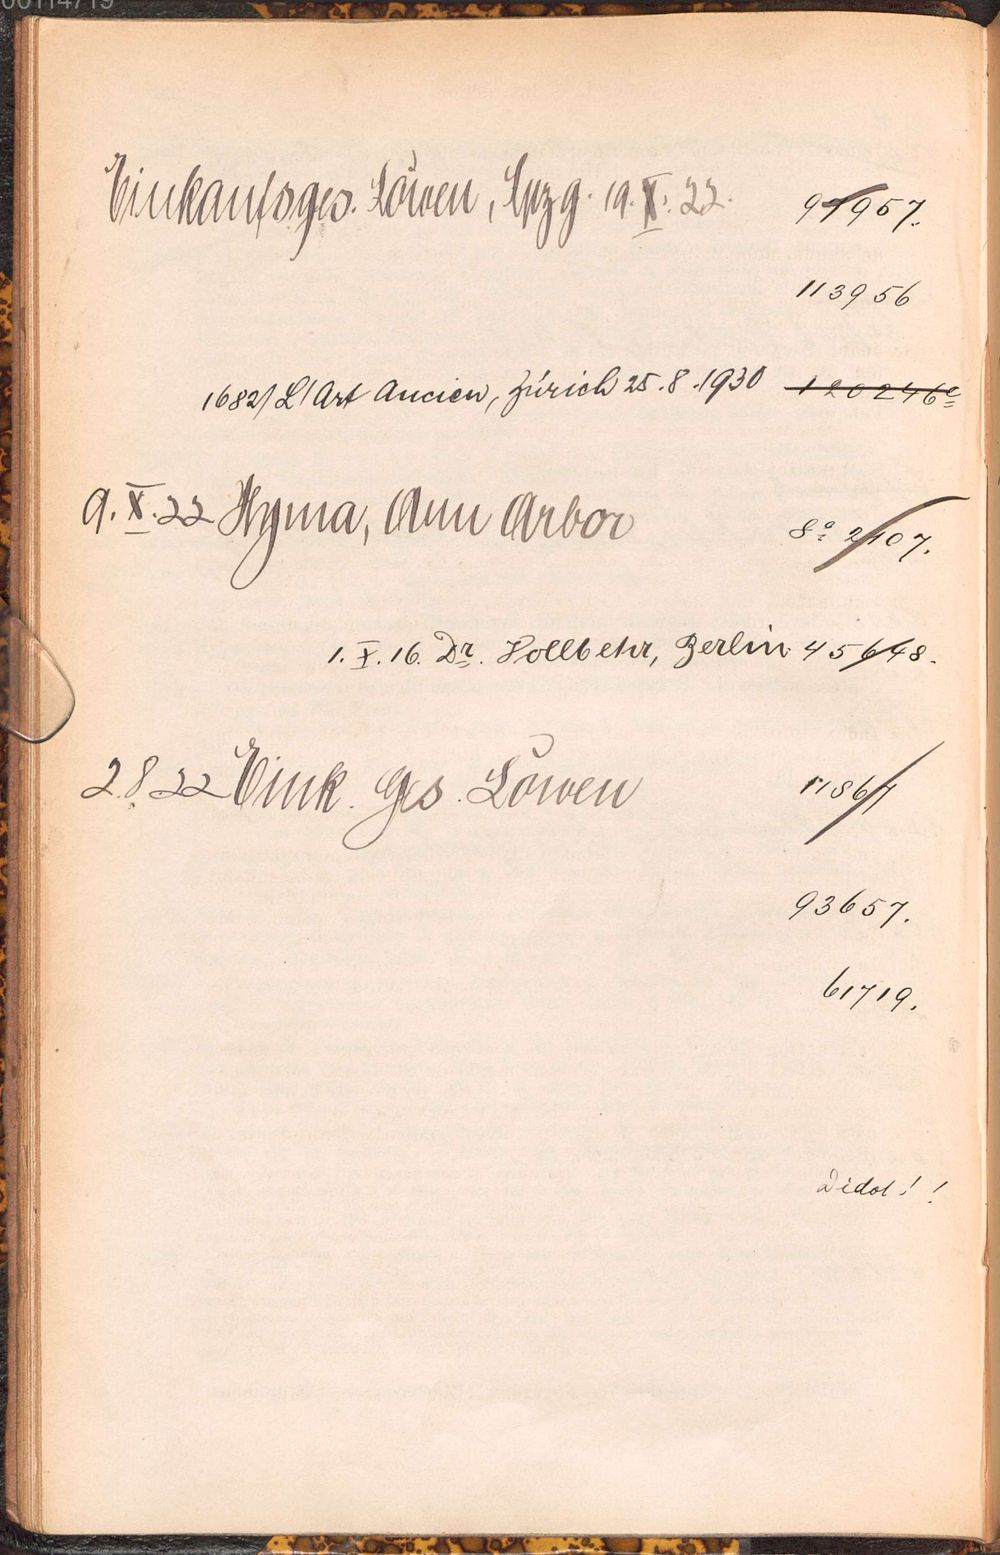 Einkaufsges. Löwen, Lpzg. 19.X.22. 91957.
113956
1682/ L'Art Ancien, Zürich 25.8.1930 120246e
9.X.22 Hyma, Ann Arbor 8° 2107.
1.X.16. Dr. Vollbehr, Berlin 45648.
2.8.22 Eink. Ges. Löwen 11861
93657.
61719.
Didot!!